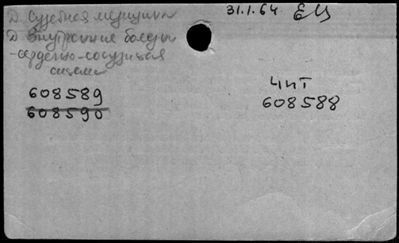 Д. Судебная медицина
31.1.64 ЕЦ
Д Внутренние болезни
-сердечно-сосудистая
система
608589
608590
ЧИТ
608588